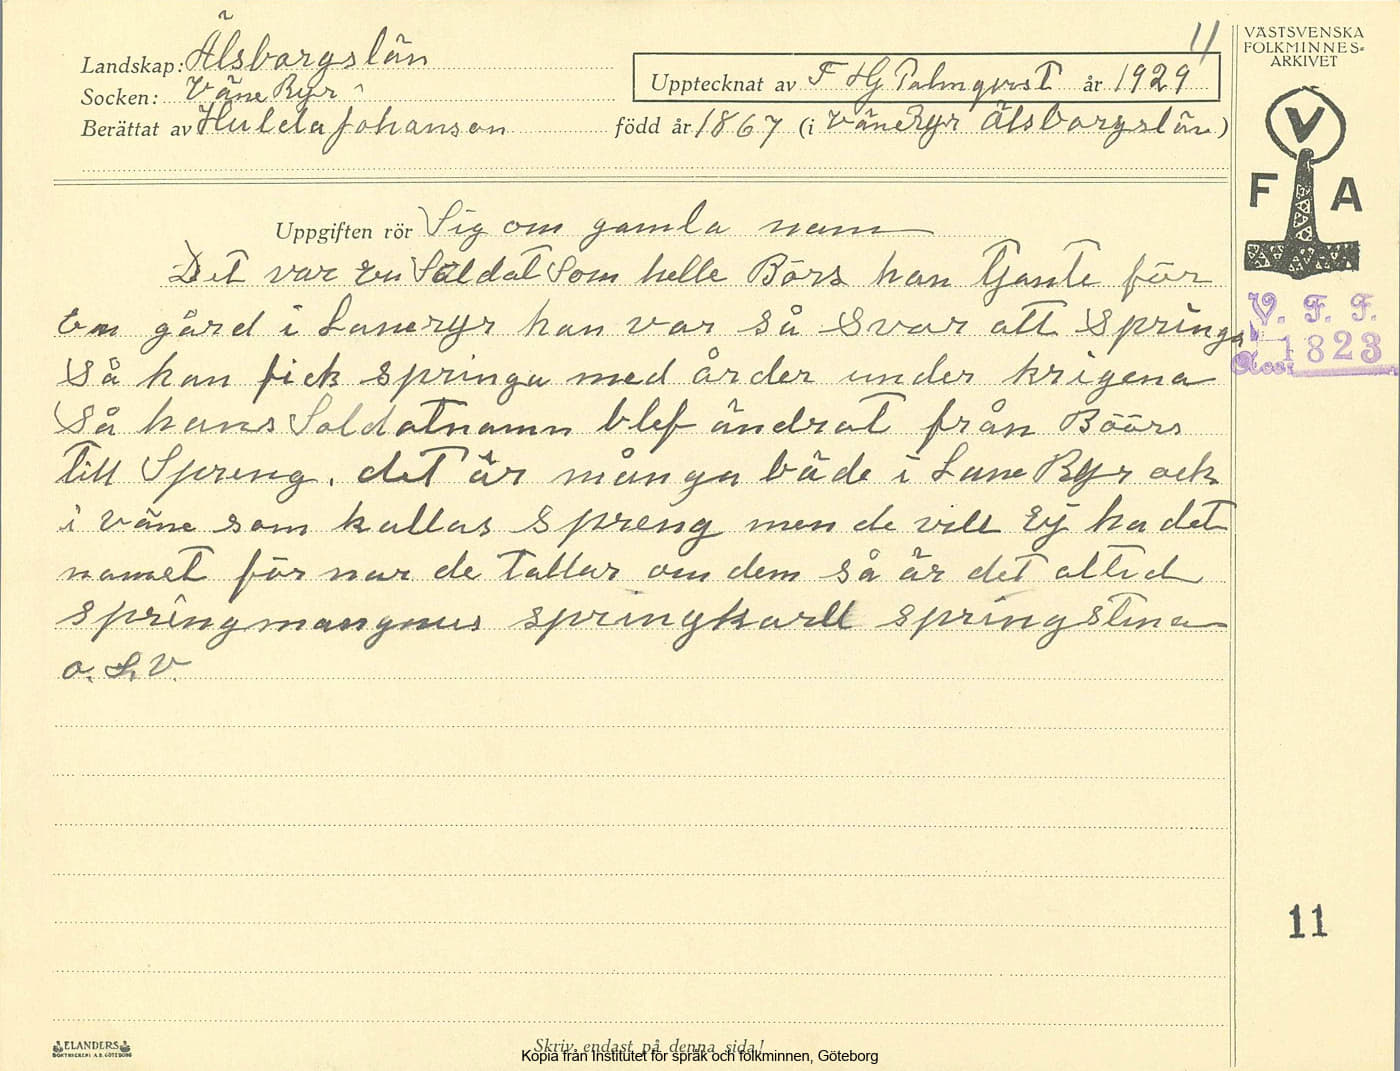 11
Landskap: Älsborgslän
Socken: Väne Ryr
Berättat av Hulda Johanson
Upptecknat av F Hj Palmqvist år 1929
född år 1867 (i Väne Ryr Älsborgslän)
VÄSTSVENSKA
FOLKMINNES-
ARKIVET
V
F A
V. F. F.
1823
Uppgiften rör Sig om gamla namn
Det var en Såldat Som helle Börs han tjante för
en gård i Laneryr han var så svor att springa
Så han fick springa med årder under krigena
Så hans Soldatnamn blef ändrat från Böörs
till Spreng. det är många både i Lane Ryr ock
i väne som kallas Spreng men de vill Ej ha det
namet för nar de tallar om dem så är det alltid
springmangnus springkarll springstina
o. s. v.
11
ELANDERS
BOKTRYCKERI A.B. GÖTEBORG
Skriv endast på denna sida!
Kopia från Institutet för språk och folkminnen, Göteborg